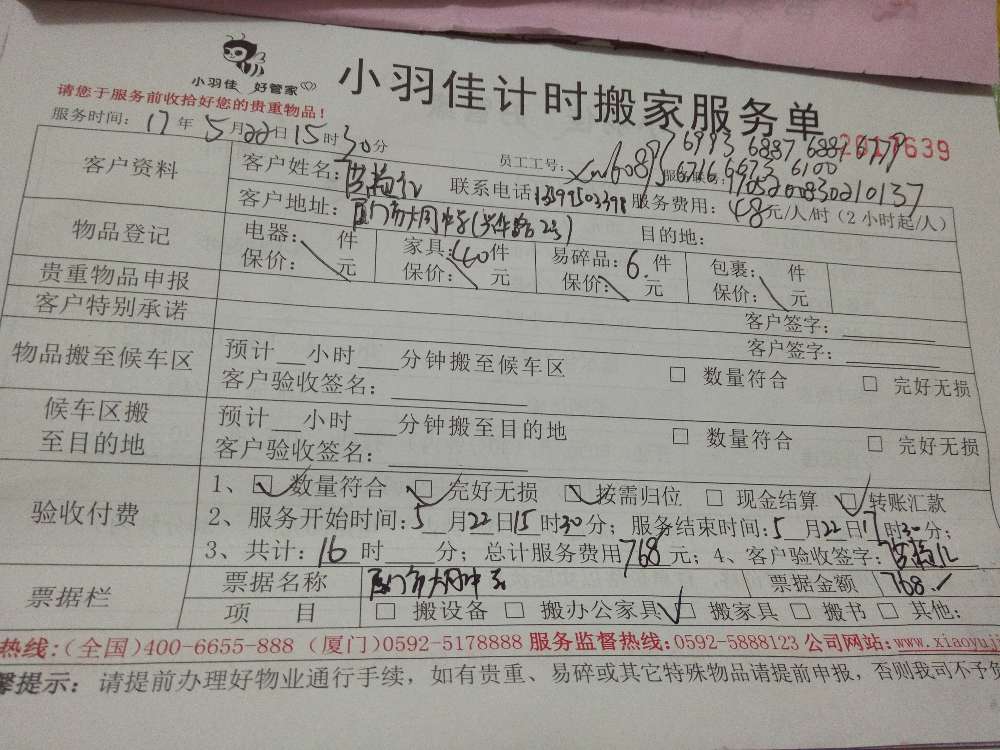 小羽佳 好管家
小羽佳计时搬家服务单
请您于服务前收拾好您的贵重物品！
2017639
服务时间：17年5月22日15时30分
员工工号：
6993 6887 6881 6779
6716 6673 6100
客户资料
客户姓名：
联系电话
服务费用：48元/人/时（2小时起/人）
1705200830210137
客户地址：厦门市大同中学
目的地：
物品登记
电器： 件 家具：40件 易碎品：6件 包裹： 件
保价： 元 保价： 元 保价： 元 保价： 元
贵重物品申报
客户签字：
客户特别承诺
客户签字：
物品搬至候车区
预计 小时 分钟搬至候车区
客户验收签名：
□ 数量符合 □ 完好无损
候车区搬
至目的地
预计 小时 分钟搬至目的地
客户验收签名：
□ 数量符合 □ 完好无损
验收付费
1、☑ 数量符合 ☑ 完好无损 ☑ 按需归位 □ 现金结算 ☑ 转账汇款
2、服务开始时间：5月22日15时30分；服务结束时间：5月22日17时30分；
3、共计：16时 分；总计服务费用768元；4、客户验收签字：
票据栏
票据名称 厦门市大同中学 票据金额 768.
项 目 □ 搬设备 □ 搬办公家具 ☑ 搬家具 □ 搬书 □ 其他：
热线：(全国)400-6655-888 (厦门)0592-5178888 服务监督热线：0592-5888123 公司网站：www.xiaoyuj
馨提示：请提前办理好物业通行手续，如有贵重、易碎或其它特殊物品请提前申报，否则我司不予